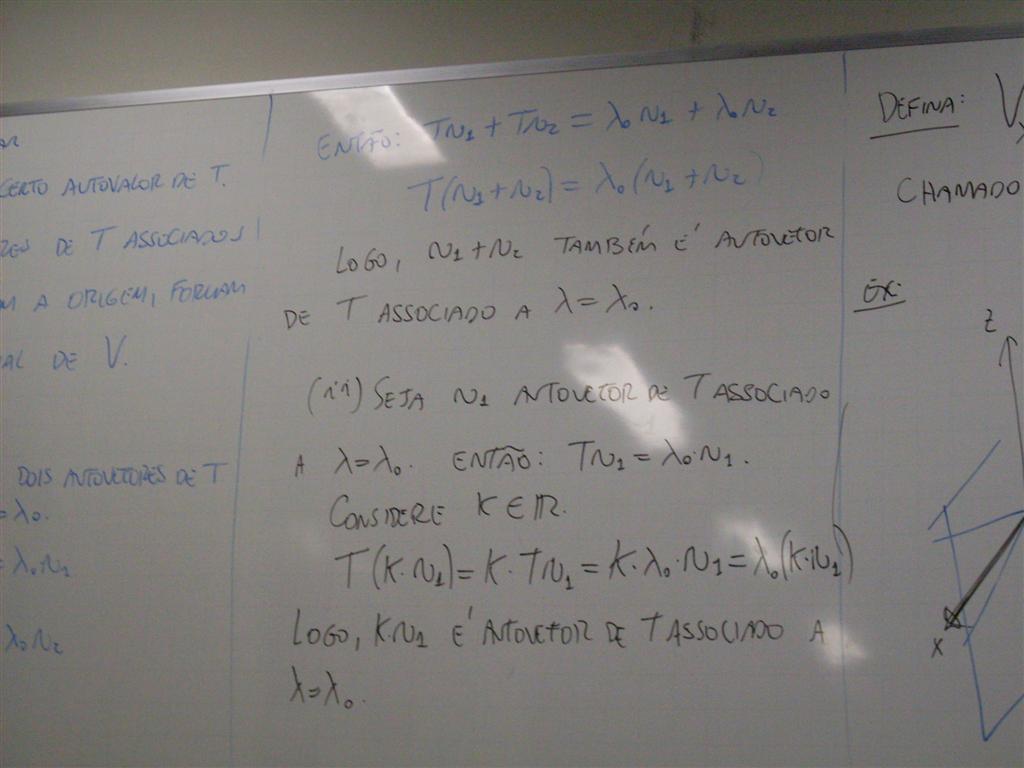 CERTO AUTOVALOR DE T.
DE T ASSOCIADOS
A ORIGEM, FORMAM
DE V.
DOIS AUTOVETORES DE T
= λ₀.
= λ₀N₁
λ₀N₂
ENTÃO: TN₁ + TN₂ = λ₀N₁ + λ₀N₂
T(N₁+N₂) = λ₀(N₁+N₂)
LOGO, N₁+N₂ TAMBÉM É AUTOVETOR
DE T ASSOCIADO A λ=λ₀.
(ii) SEJA N₁ AUTOVETOR DE T ASSOCIADO
A λ=λ₀. ENTÃO: TN₁ = λ₀·N₁.
CONSIDERE K ∈ IR.
T(K·N₁) = K·TN₁ = K·λ₀·N₁ = λ₀(K·N₁)
LOGO, K·N₁ É AUTOVETOR DE T ASSOCIADO A
λ=λ₀.
DEFINA: V
CHAMADO
EX:
Z
X